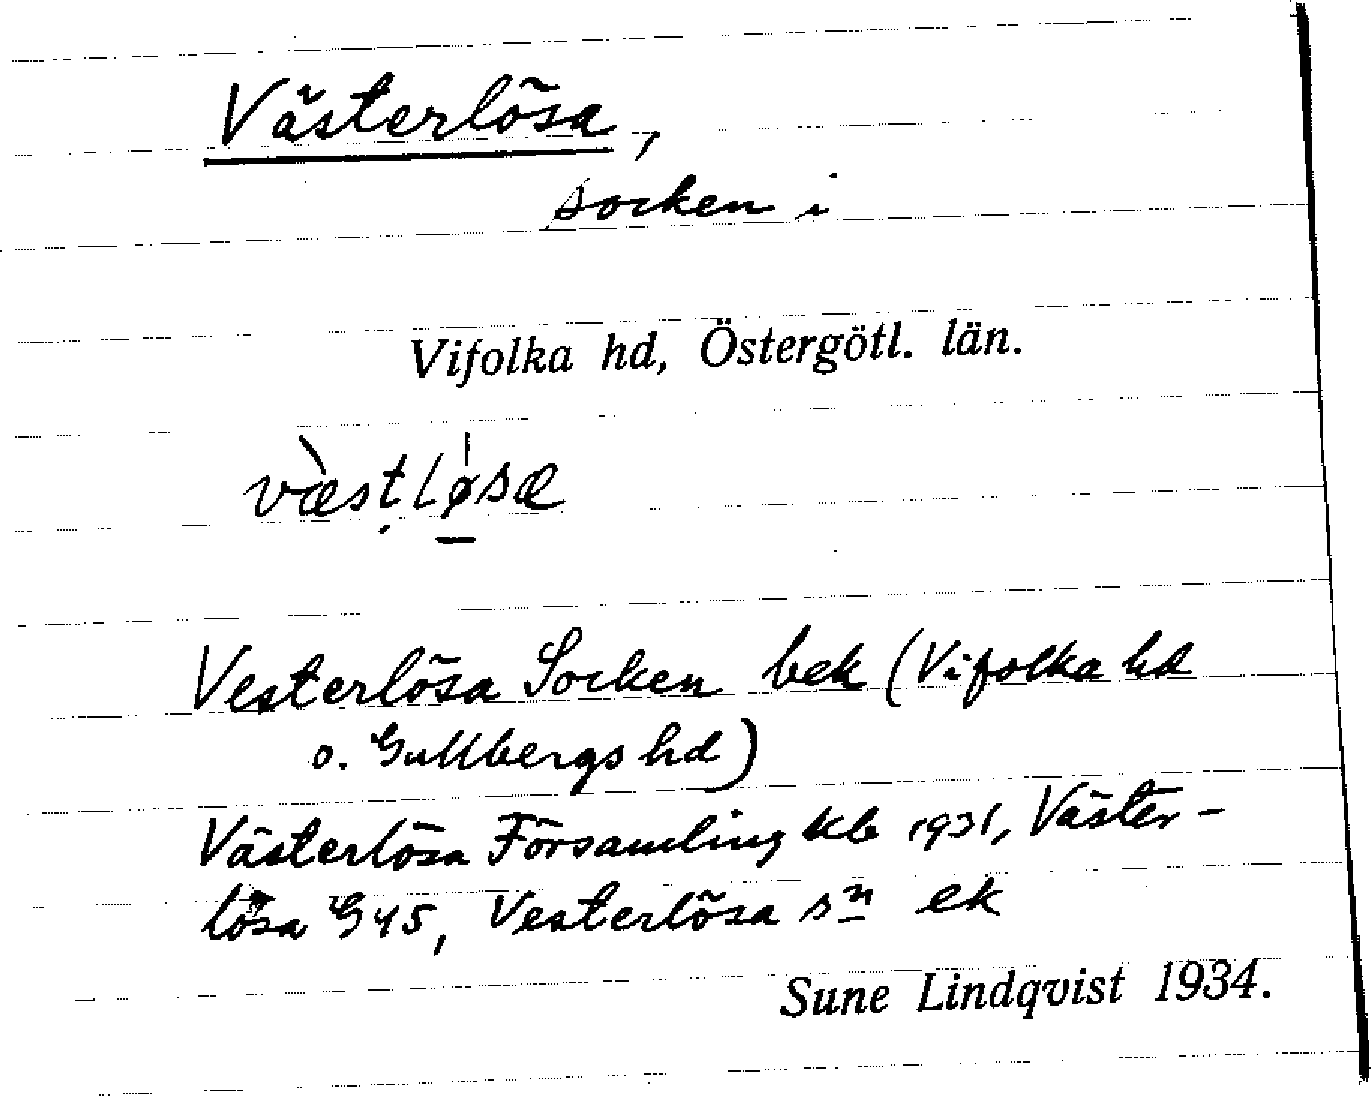 Västerlösa,
socken i
Vifolka hd, Östergötl. län.
væ̀sṭlø̱̍sæ
Vesterlösa Socken bek (Vifolka hd
o. Gullbergs hd)
Västerlösa Församling kb 1931, Väster-
lösa G45, Vesterlösa sn ek
Sune Lindqvist 1934.